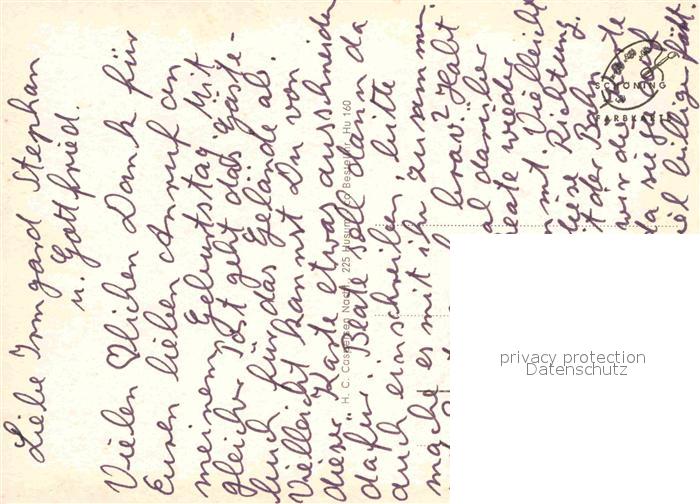 Liebe Irmgard Stephan
u. Gottfried.
Vielen ♡lichen Dank für
Euren lieben Anruf an
meinem Geburtstag. Mit
gleicher Post geht das Gäste-
buch für das Gelände ab.
Vielleicht kannst Du von
dieser Karte etwas ausschneiden
dafür. Beate soll dann da
auch einschreiben, bitte
mache es mit ihr zusammen.
brav? Habt
mal darüber
Beate wieder
mt. Vielleicht
diese Richtung.
t der Bahn
wir die
da sie
viel billiger fährt.
H. C. Caspersen Nachf., 225 Husum
Bestellnr. Hu 160
SCHÖNING
FARBKARTE
privacy protection
Datenschutz